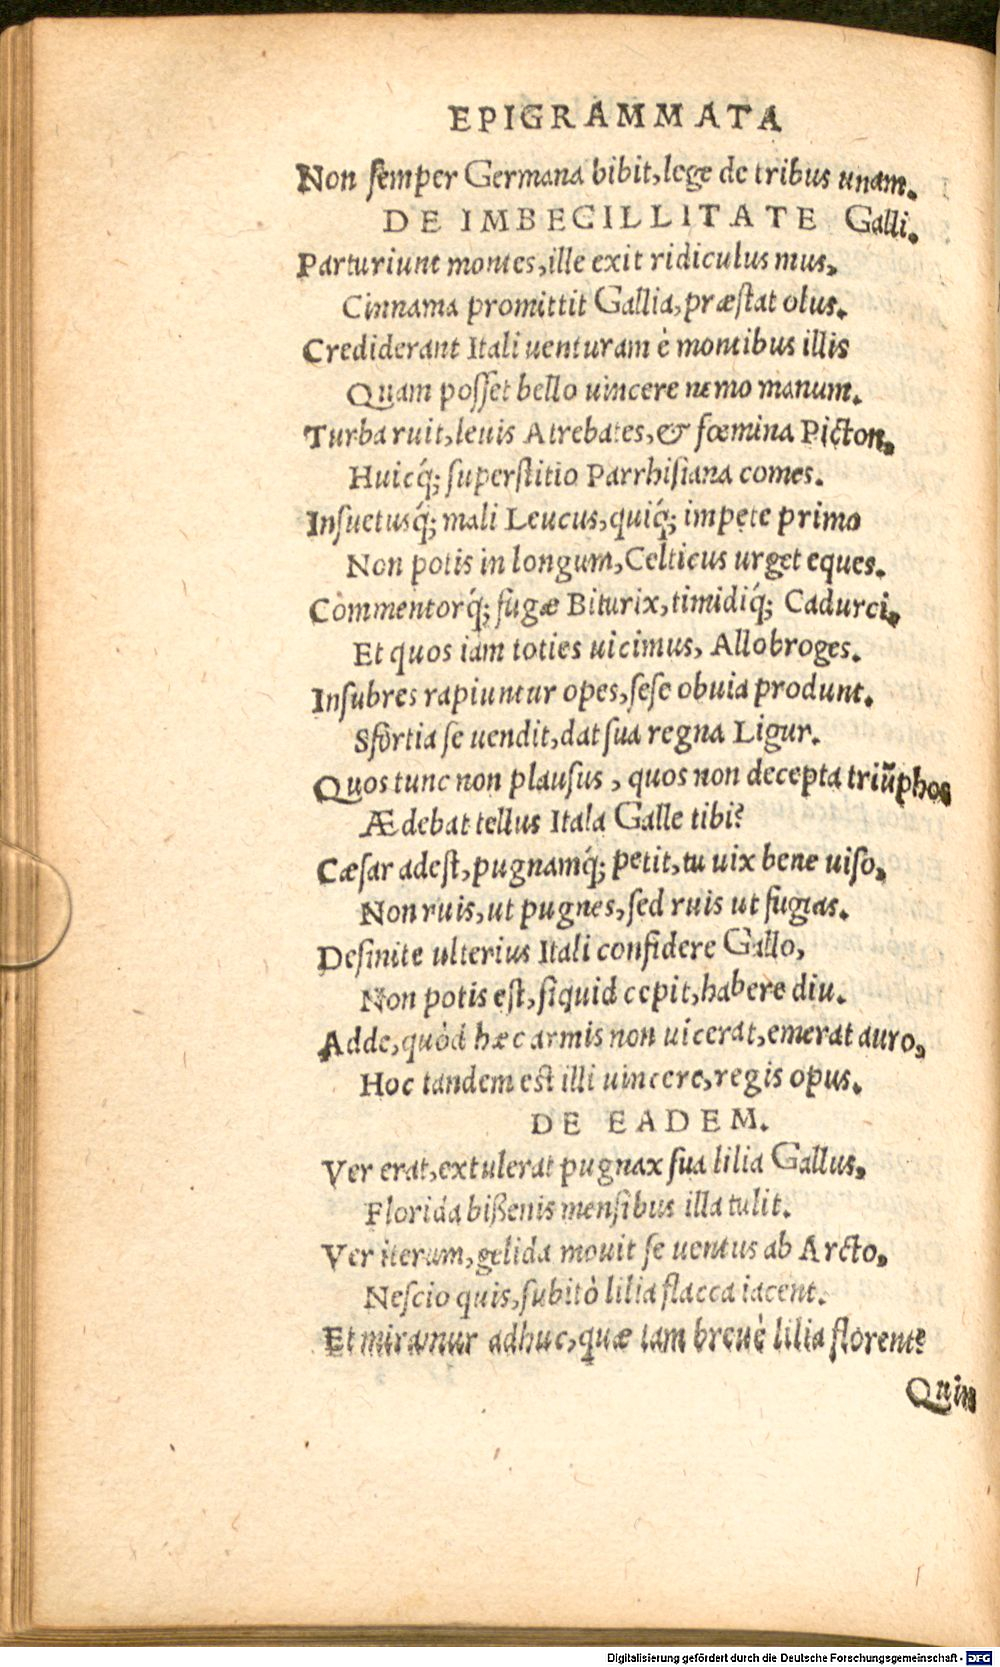 EPIGRAMMATA
Non semper Germana bibit, lege de tribus unam.
DE IMBECILLITATE Galli.
Parturiunt montes, ille exit ridiculus mus,
Cinnama promittit Gallia, præstat olus.
Crediderant Itali uenturam è montibus illis
Quam posset bello uincere nemo manum.
Turba ruit, leuis Atrebates, & fœmina Picton,
Huicq́; superstitio Parrhisiana comes.
Insuetusq́; mali Leucus, quiq́; impete primo
Non potis in longum, Celticus urget eques.
Commentorq́; fugæ Biturix, timidiq́; Cadurci,
Et quos iam toties uicimus, Allobroges.
Insubres rapiuntur opes, sese obuia produnt.
Sfortia se uendit, dat sua regna Ligur.
Quos tunc non plausus, quos non decepta triũphos
Ædebat tellus Itala Galle tibi?
Cæsar adest, pugnamq́; petit, tu uix bene uiso,
Non ruis, ut pugnes, sed ruis ut fugias.
Desinite ulterius Itali confidere Gallo,
Non potis est, siquid cepit, habere diu.
Adde, quòd hæc armis non uicerat, emerat auro,
Hoc tandem est illi uincere, regis opus.
DE EADEM.
Ver erat, extulerat pugnax sua lilia Gallus,
Florida bißenis mensibus illa tulit.
Ver iterum, gelida mouit se uentus ab Arcto,
Nescio quis, subitò lilia flacca iacent.
Et miramur adhuc, quæ iam breuè lilia florent?
Quin
Digitalisierung gefördert durch die Deutsche Forschungsgemeinschaft - DFG